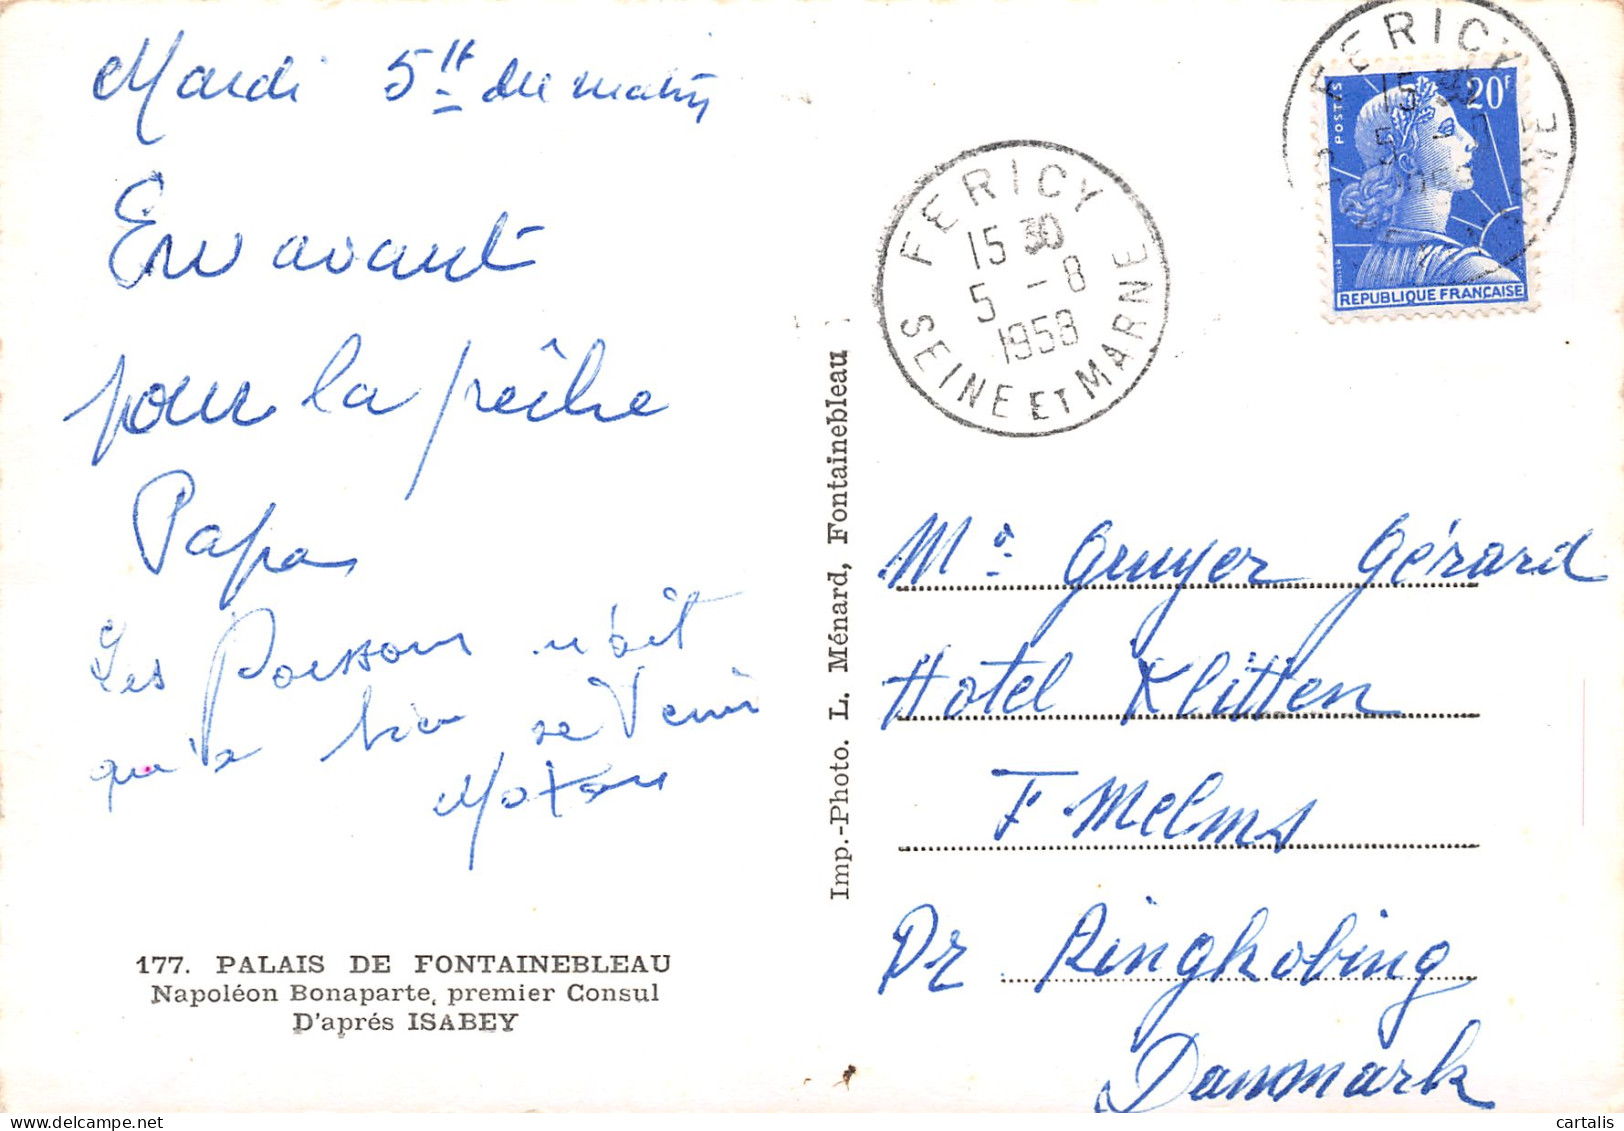 Mardi 5H du matin
En avant
pour la pêche
Papa
Les Poissons n'ont
qu'a bien se Tenir
177. PALAIS DE FONTAINEBLEAU
Napoléon Bonaparte, premier Consul
D'aprés ISABEY
Imp.-Photo. L. Ménard, Fontainebleau
FERICY
15 30
5 - 8
1958
SEINE ET MARNE
FERICY
15 30
5 - 8
POSTES
20F
MULLER
REPUBLIQUE FRANÇAISE
Mr Gruyer Gérard
Hotel Klitten
F Melms
Pr Ringkobing
Danmark
cartalis